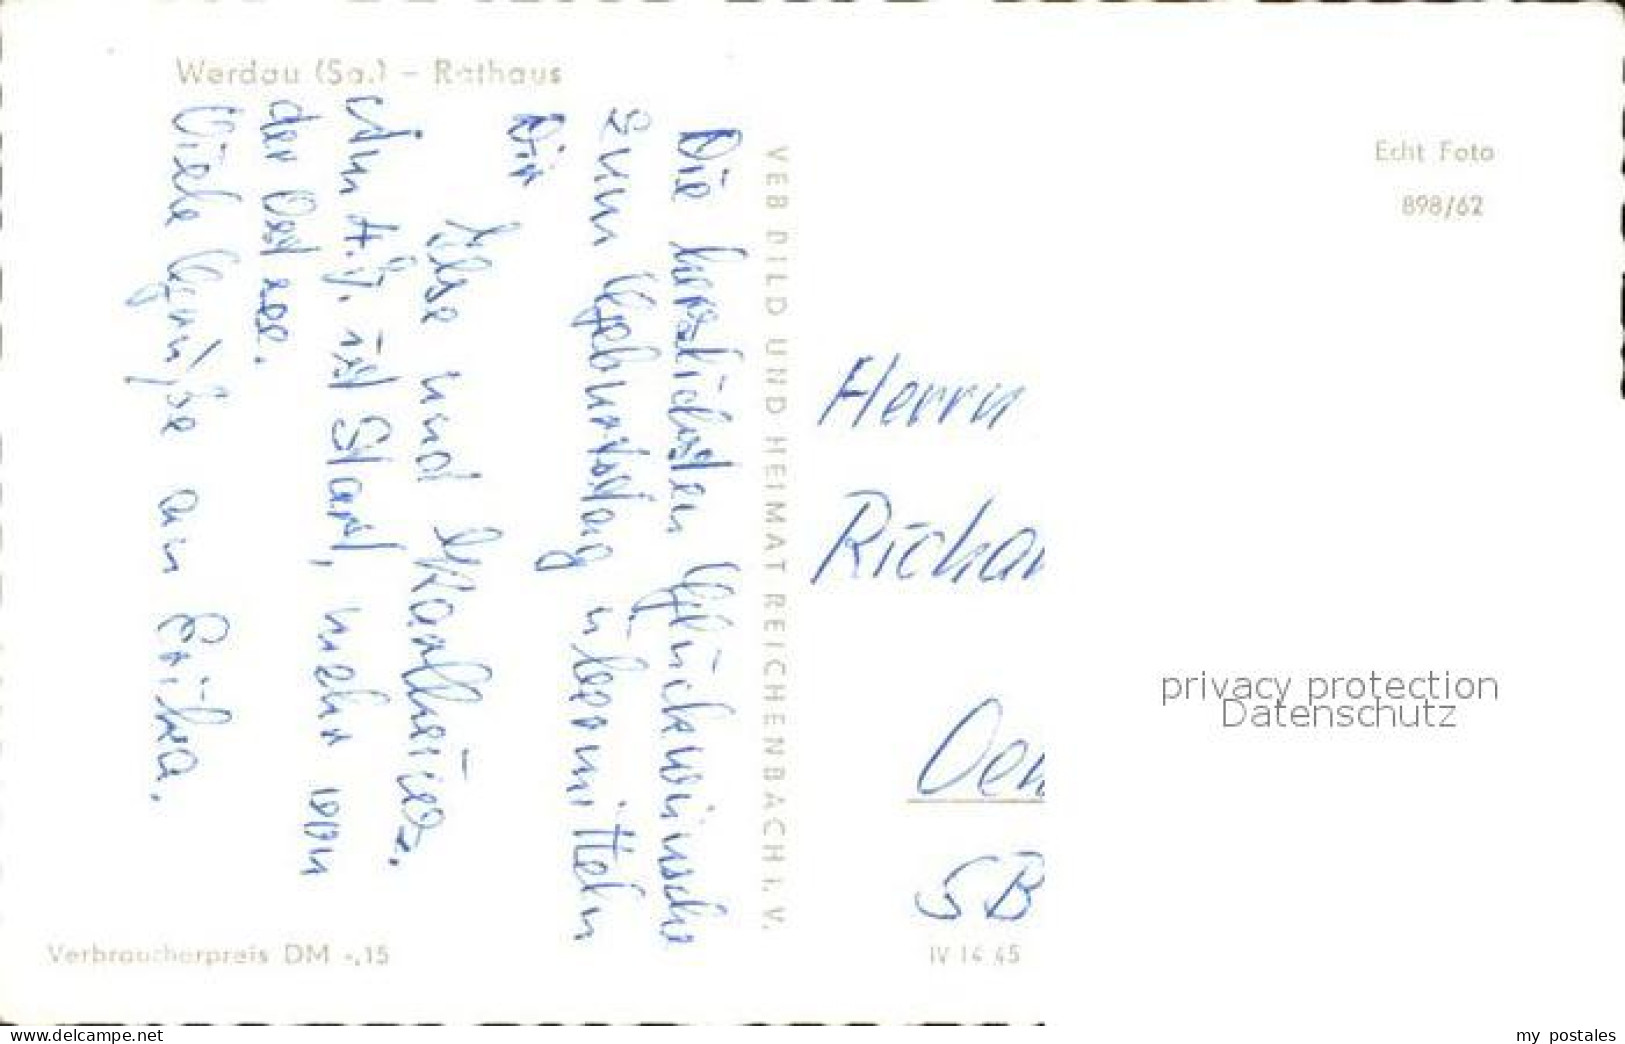 Werdau (Sa.) – Rathaus
Die herzlichsten Glückwünsche
zum Geburtstag übermitteln
Dir
Ilse und Karlheinz.
Am 4.9. ist Start, mehr von
der Ostsee.
Viele Grüße an Erika.
VEB BILD UND HEIMAT REICHENBACH I. V.
Verbraucherpreis DM -,15
Echt Foto
898/62
Herrn
Richar
SB
IV 14 45
privacy protection
Datenschutz
www.delcampe.net
my_postales